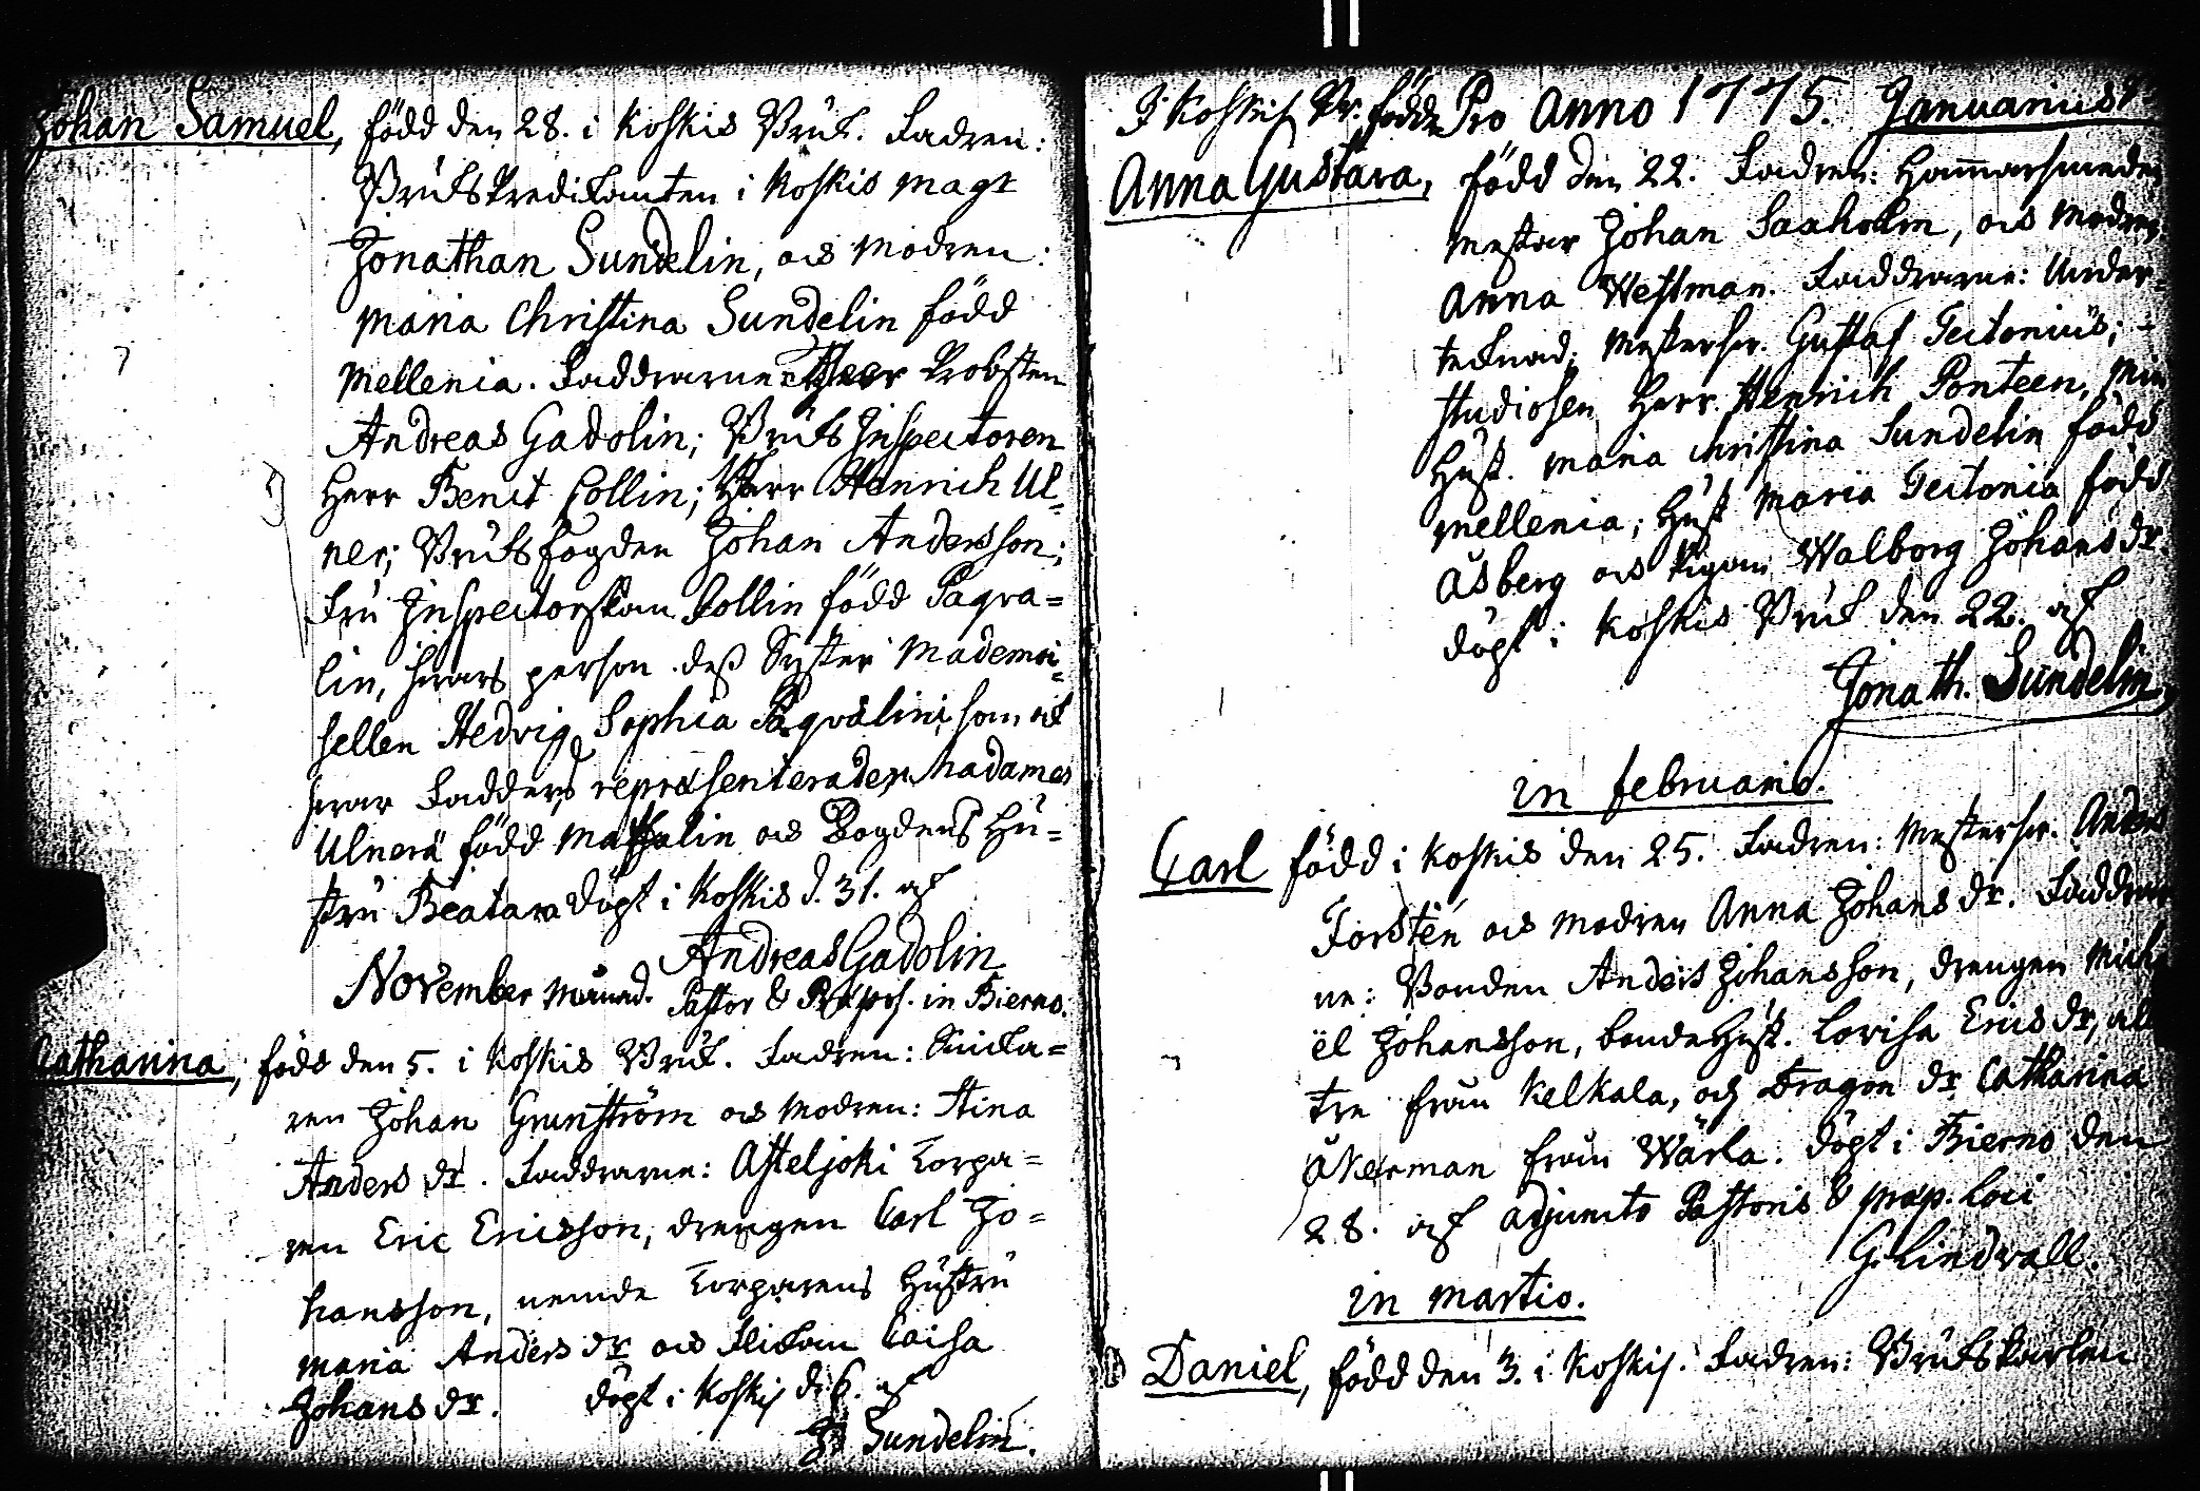 Johan Samuel, född den 28. i Koskis Bruk. Fadren:
BruksPredikanten i Koskis Magr
Jonathan Sundelin, och Modren:
Maria Christina Sundelin född
Mellenia. Faddrarne: Herr Probsten
Andreas Gadolin; Bruks Inspectoren
Herr Benct Collin; Herr Henrich Ul-
ner; Bruksfogden Johan Andersson;
Fru Inspectorskan Collin född Paqva=
lin, hvars person dess Syster Mademoi-
sellen Hedvig Sophia Paqvalin, som ock
var Fadder, repræsenterade; Madamen
Ulnera född Massalin och Bogdens Hu=
stru Beata. Döpt i Koskis d. 31. af
Andreas Gadolin
November Månad. Pastor & Præpos. in Bierno.
Catharina, född den 5. i Koskis Bruk. Fadren: Snicka=
ren Johan Grunström och Modren: Stina
Anders dr. Faddrarne: Asteljoki Torpa=
ren Eric Ericsson, drengen Carl Jo=
hansson, nemde Torparens Hustru
Maria Anders dr och Flickan Caisa
Johans dr. Döpt i Koskis d. 6. af
J. Sundelin.
I Koskis Br. födde Pro Anno 1775. Januarius
Anna Gustava, född den 22. Fadren: Hammarsmeden
Mestar Johan Saaholm, och Modren
Anna Westman. Faddrarne: Under-
teknad; Mestersv. Gustaf Tectonius;
Studiosen Herr Henrich Ponteen, Min
Hust. Maria Christina Sundelin född
Mellenia; Hust Maria Tectonia född
Åsberg och Pigan Walborg Johans dr.
döpt i Koskis Bruk den 22. af
Jonath. Sundelin
in februario.
Carl född i Koskis den 25. Fadren: Mestersv. Anders
Forstén och Modren Anna Johans dr. Faddrar
ne: Bonden Anders Johansson, drengen Mich
ël Johansson, bonde Hust. Lovisa Erics dr, al
tre från Kelkala, och Dragon dr Catharina
Åkerman från Wärla. Döpt i Bierno den
28. af adjuncto Pastoris & præp. loci
G. Lindwall.
in martio.
Daniel, född den 3. i Koskis. Fadren: Brukskarlen